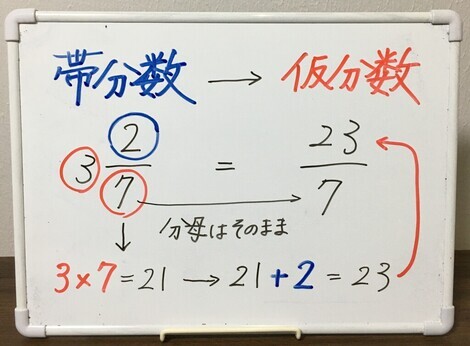 帯分数 → 仮分数
3 2/7 = 23/7
分母はそのまま
3×7=21 → 21+2=23